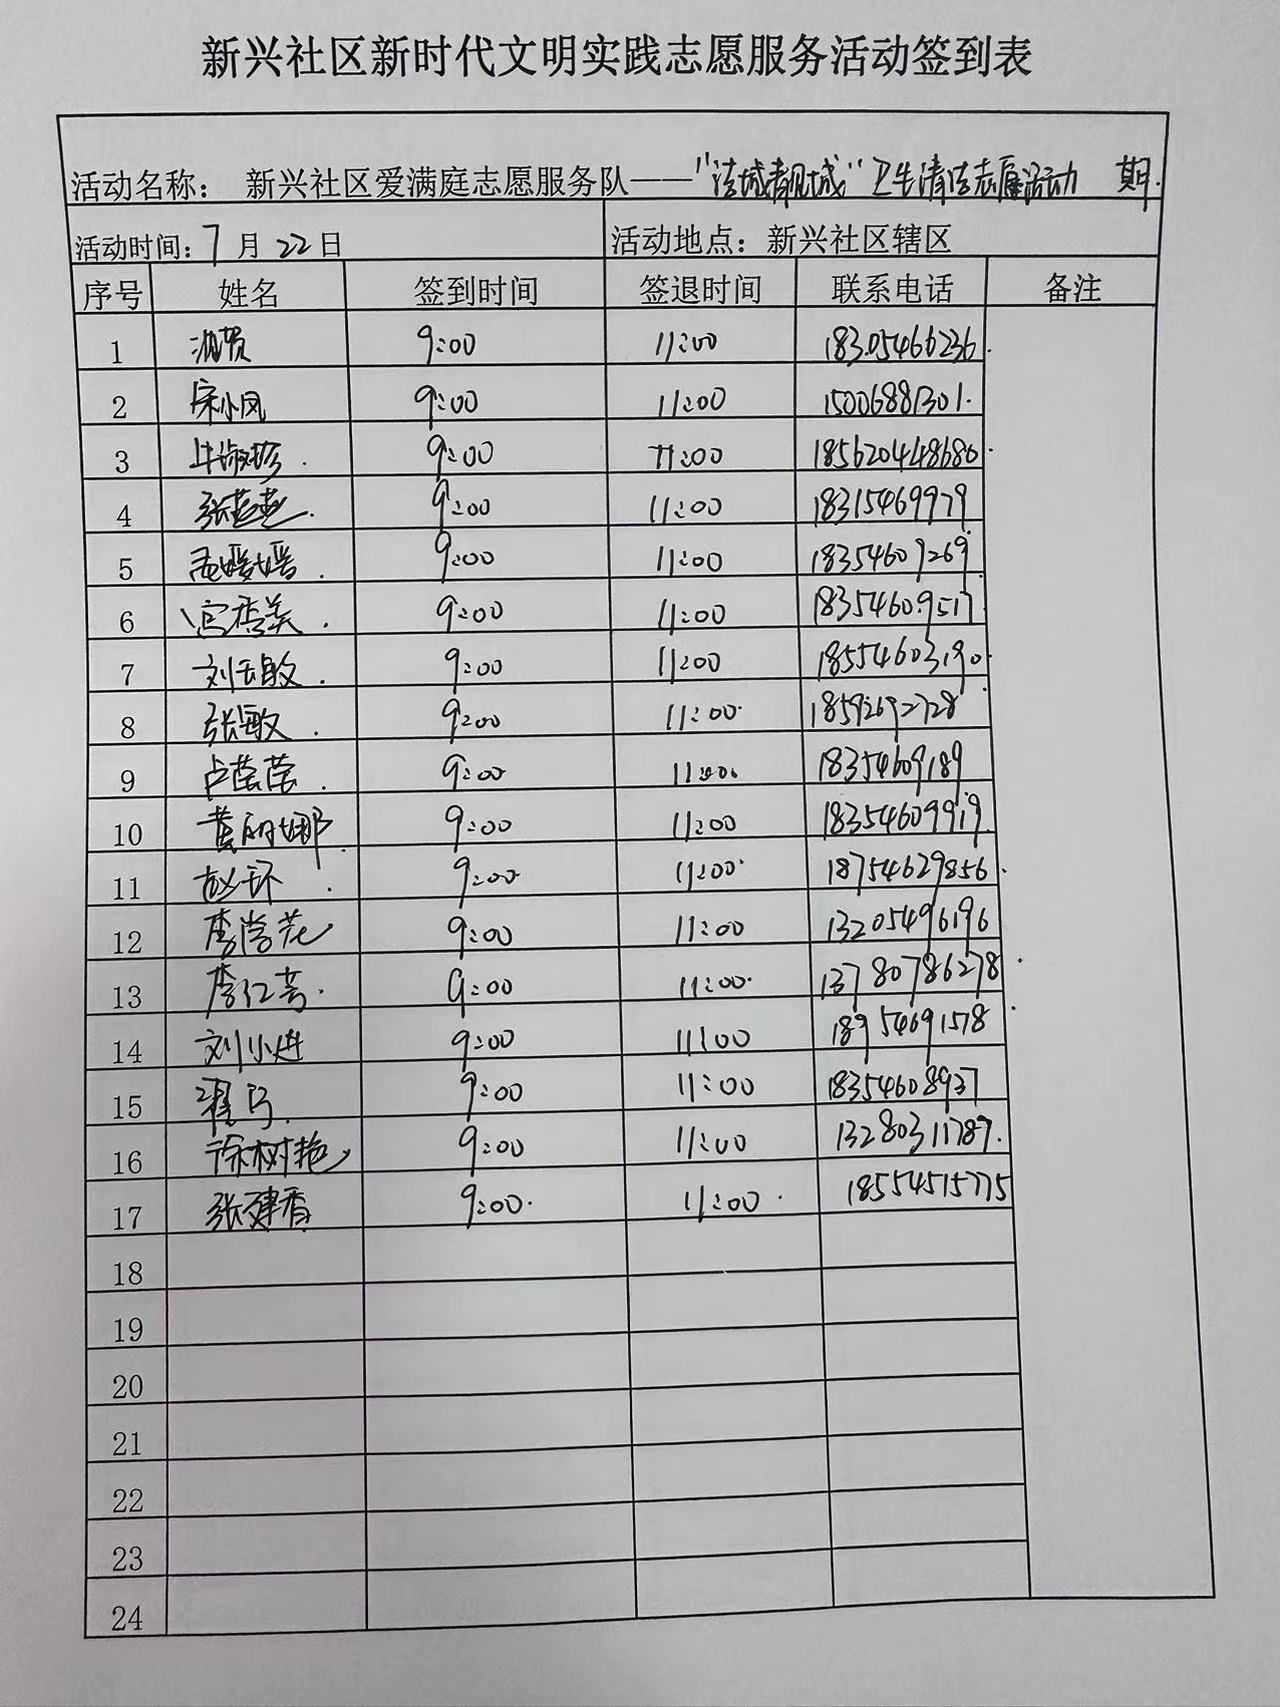 新兴社区新时代文明实践志愿服务活动签到表
活动名称： 新兴社区爱满庭志愿服务队——"洁城靓城"卫生清洁志愿活动 期.
活动时间：7 月 22 日 活动地点：新兴社区辖区
序号 姓名 签到时间 签退时间 联系电话 备注
1 9:00 11:00 18305466236.
2 宋小凤 9:00 11:00 15006881301.
3 牛淑珍. 9:00 11:00
4 张燕燕. 9:00 11:00 18315469979
5 孟媛媛. 9:00 11:00 18354609269
6 宫秀美. 9:00 11:00 18354609517
7 刘云敏. 9:00 11:00 18554603190
8 张敏. 9:00 11:00. 18592692728
9 卢莹莹. 9:00 11:00. 18354609189
10 黄丽娜. 9:00 11:00 18354609919.
11 赵环. 9:00 11:00. 18754629856.
12 李学花 9:00 11:00 13205496196
13 李仁芳. 9:00 11:00. 13780786278
14 刘小进 9:00 11:00 18954691578
15 翟巧. 9:00 11:00 18354608937
16 徐树艳 9:00 11:00 13280311789.
17 张建香 9:00. 11:00. 18554515775
18
19
20
21
22
23
24